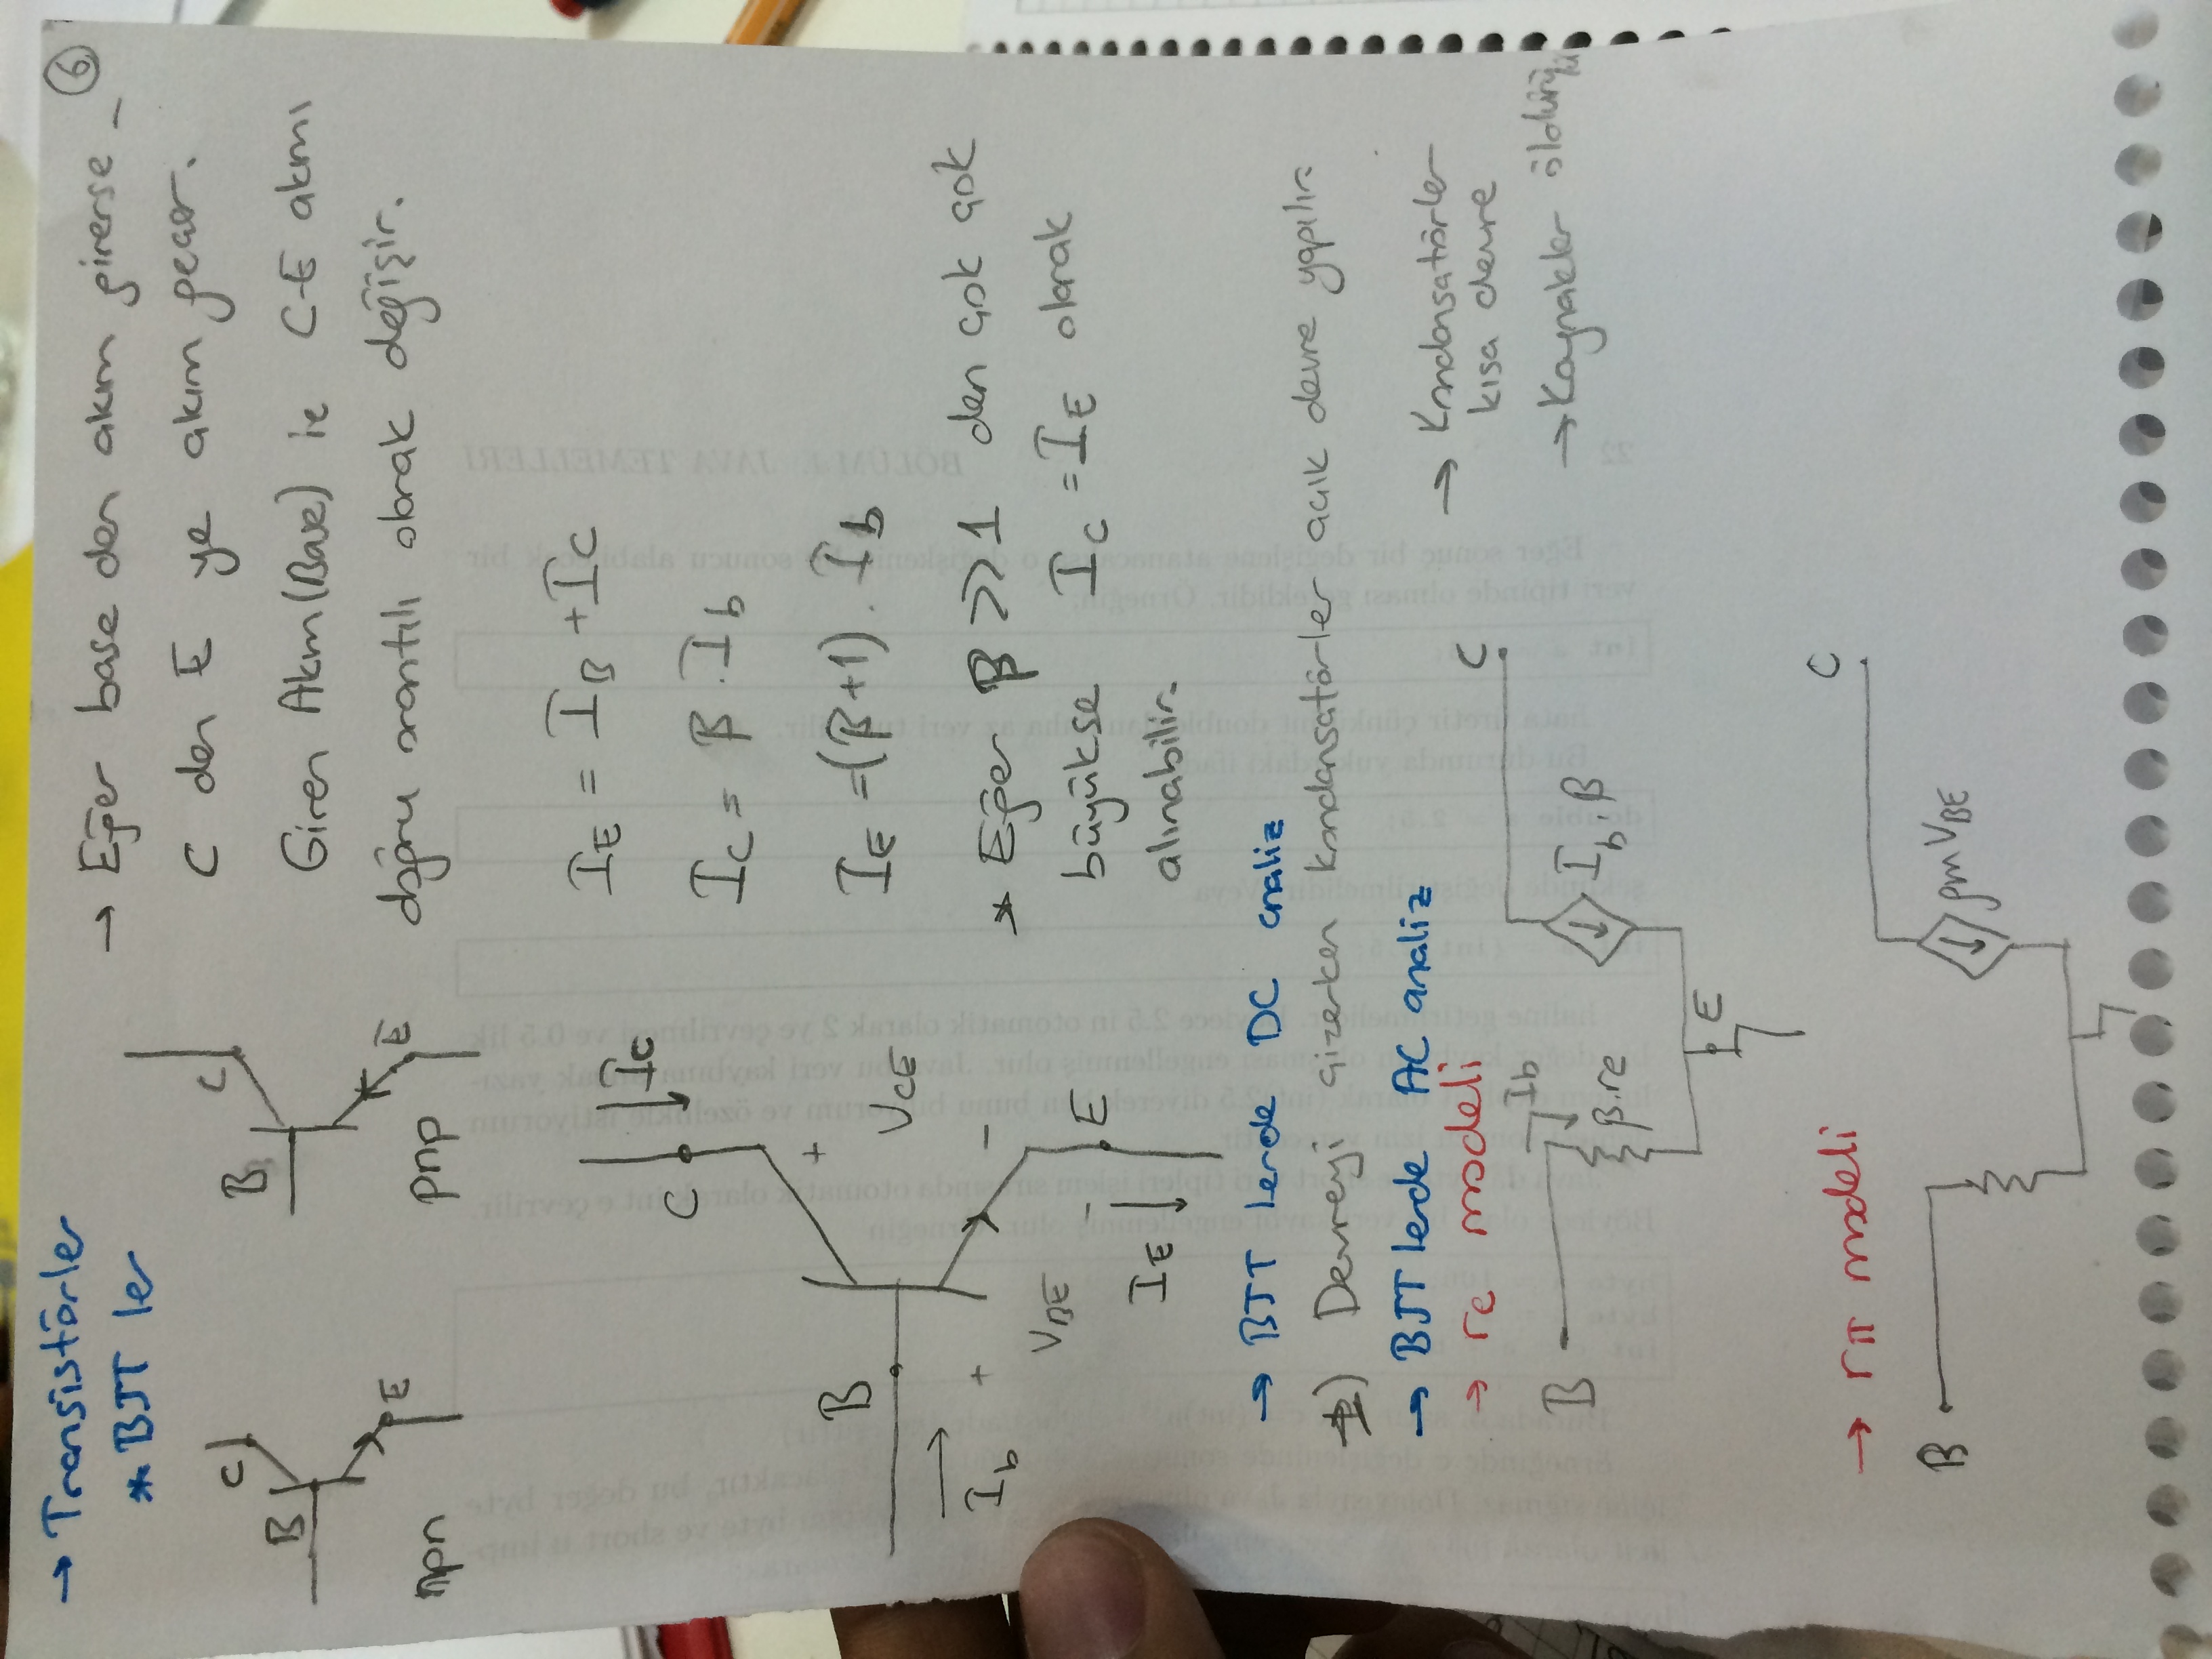 → Transistörler
* BJT ler
6
→ Eğer base den akım girerse
C den E ye akım geçer.
Giren Akım (Base) ie C-E akımı
doğru orantılı olarak değişir.
C
B
E
npn
C
B
E
pnp
I_C
C
B
I_b
+
V_CE
-
+
V_BE
-
E
I_E
I_E = I_B + I_C
I_C = β . I_b
I_E = (β+1) . I_b
* Eğer β >> 1 den çok çok
büyükse I_C = I_E olarak
alınabilir.
→ BJT lerde DC analiz
) Devreyi çizerken kondansatörler açık devre yapılır.
→ BJT lerde AC analiz
→ re modeli
→ Kondansatörler
kısa devre
→ Kaynaklar
B
I_b
β.re
C
I_b.β
E
→ rπ modeli
B
C
gm V_BE